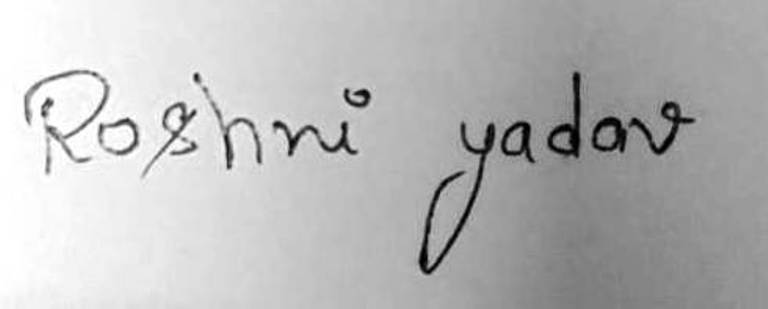 Roshni yadav